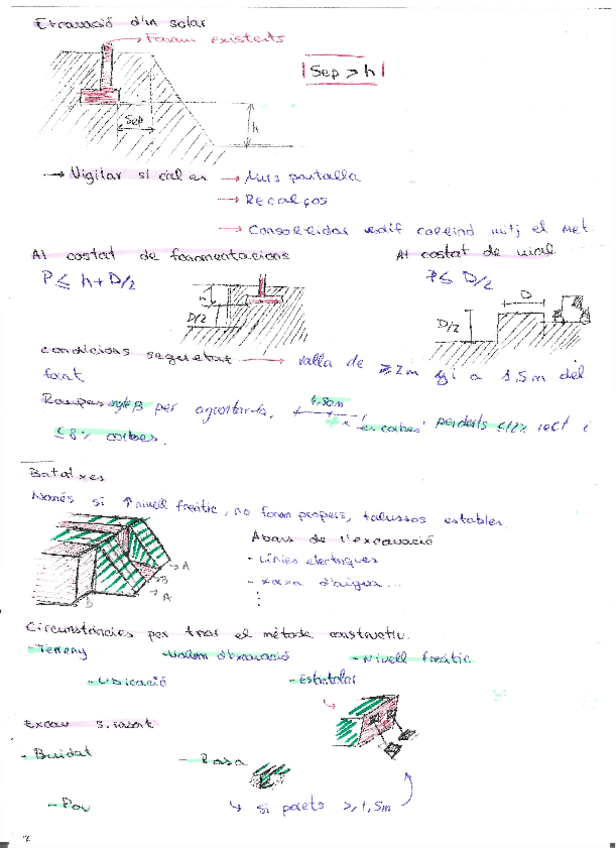 Excavació d'un solar
→ Fonam existents
Sep > h
Sep
h
→ Vigilar si cal en → Murs pantalla
→ Recalços
→ Consolidar edif mitj el
Al costat de fonamentacions
Al costat de vial
P ≤ h + D/2
P ≤ D/2
h
D
D/2
D/2
condicions seguretat → valla de ≥ 2m i a 1,5m del
front
Rampes per aguantarla, 4,50m en corbes pendents ≤12% rect i
≤ 8% corbes.
Bataixes
Només si ↑ nivell freàtic, no fonam propers, talussos estables.
Abans de l'excavació
- Línies elèctriques
- xarxa d'aigua ...
⋮
A
B
A
B
Circumstàncies per triar el mètode constructiu.
- Terreny
- Volum d'excavació
- Nivell freàtic
- Ubicació
Excav
- Buidat
- Rasa
- Pou
↳ si parets ≥ 1,5m